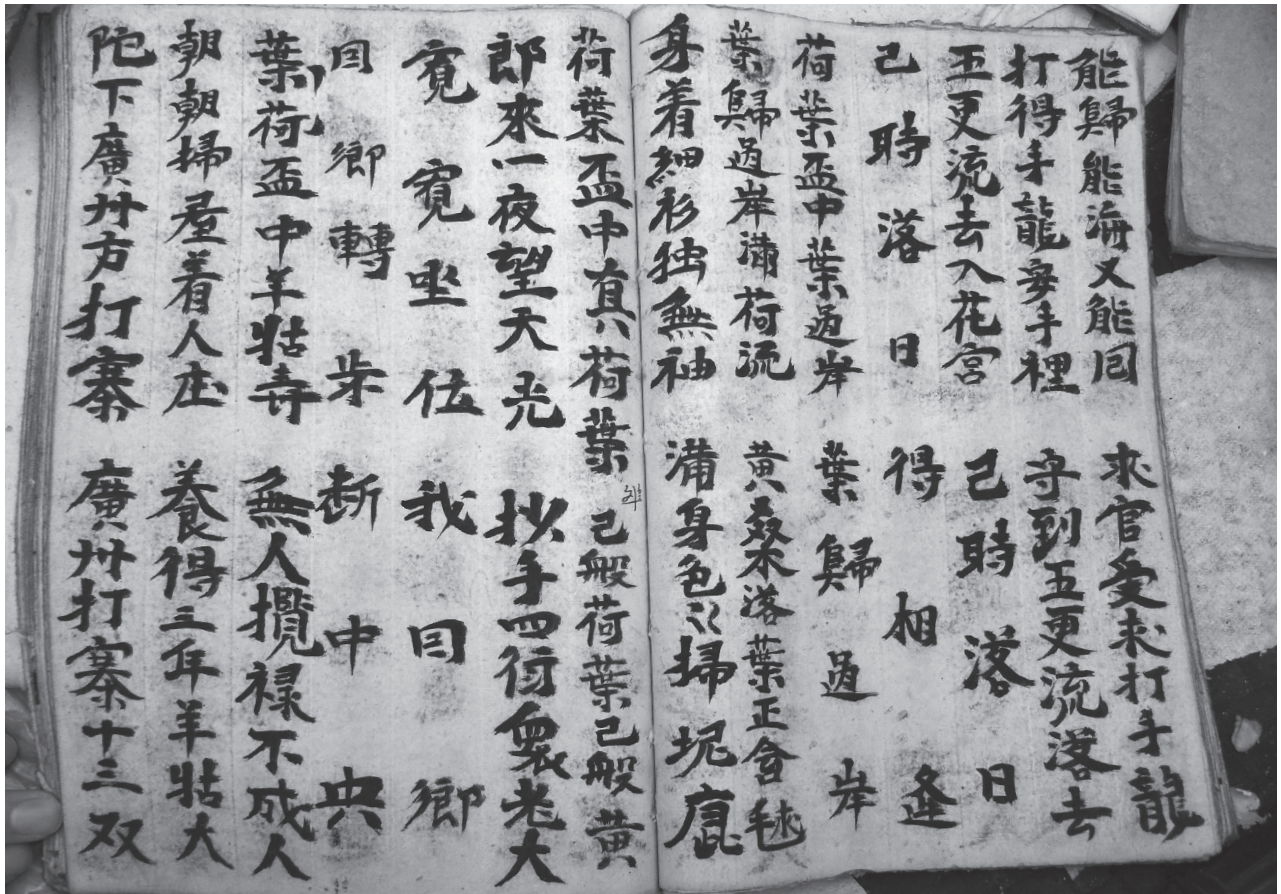 能歸能海又能囘 求官受求打手龍
打得手龍安手裡 守到五更流落去
五更流去入花宮 己時落日
己時落日 得相逢
荷葉盃中葉過岸 葉歸過岸
葉歸過岸滿荷流 黃桑落葉正含毬
身着細衫独無袖 滿身色々掃坭
荷葉盃中有真荷葉 己般荷葉己般黃
郎來一夜望天光 抄手四行衆老大
寬寬坐位 我囘鄉
囘鄉轉步断中央
葉荷盃中羊牯寺 無人攬禄不成人
朝朝掃屋着人庄 養得三年羊牯大
陀下廣卅方打寨 廣卅打寨十三双